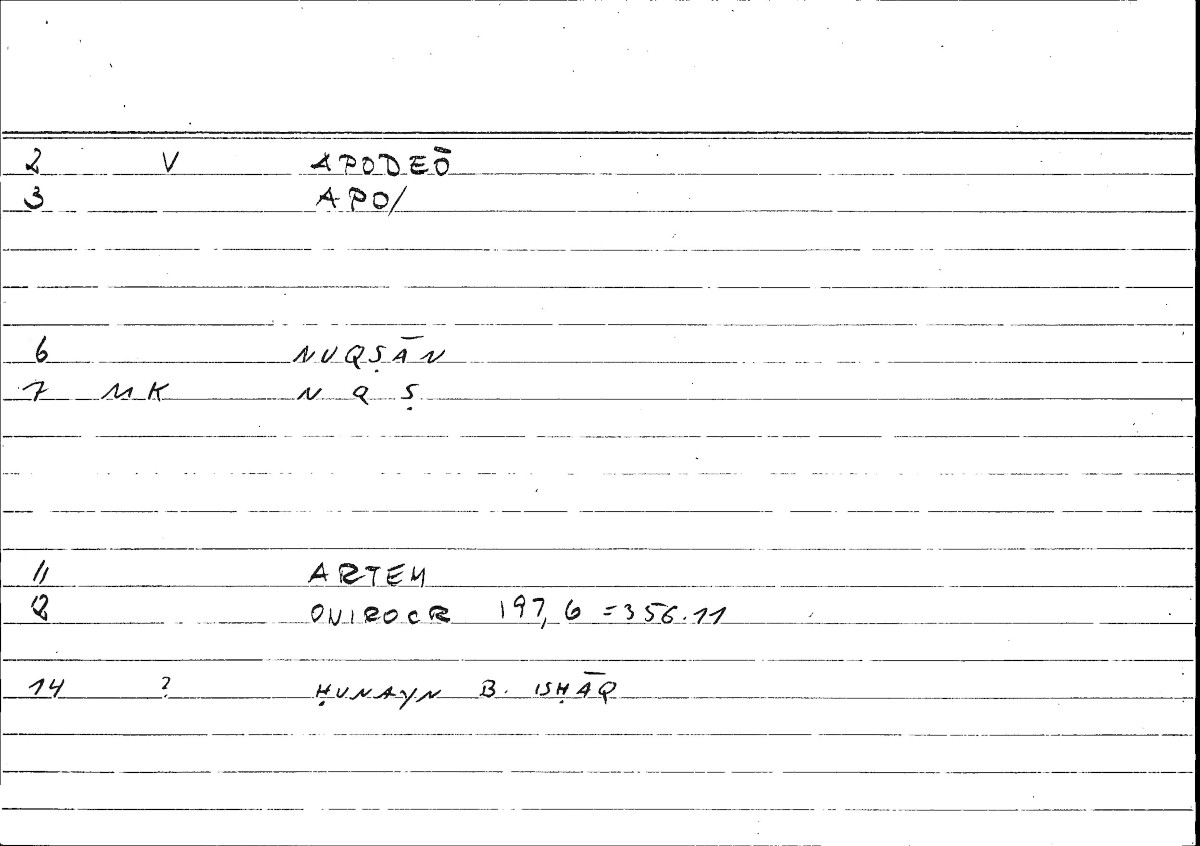 2 V APODEŌ
3 APO/
6 NUQṢĀN
7 MK N Q Ṣ
11 ARTEM
12 ONIROCR 197,6 =356.11
14 ? ḤUNAYN B. ISḤĀQ